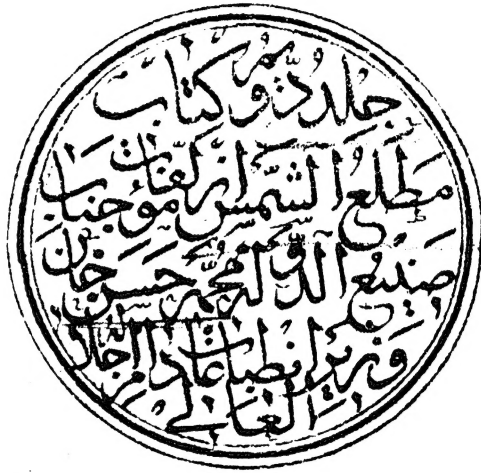 جلد دویم کتاب
مطلع الشمس از تألیفات جناب
صنیع الدوله محمد حسن خان
وزیر انطباعات دام اجلاله
العالی